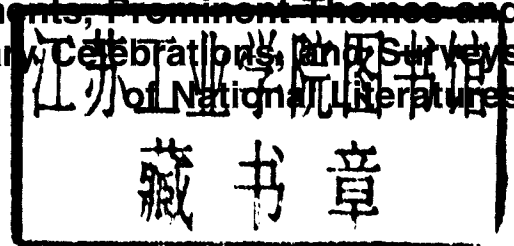 nents, Prominent Themes and
ry Celebrations, and Surveys
of National Literatures
江苏工业学院图书馆
藏书章